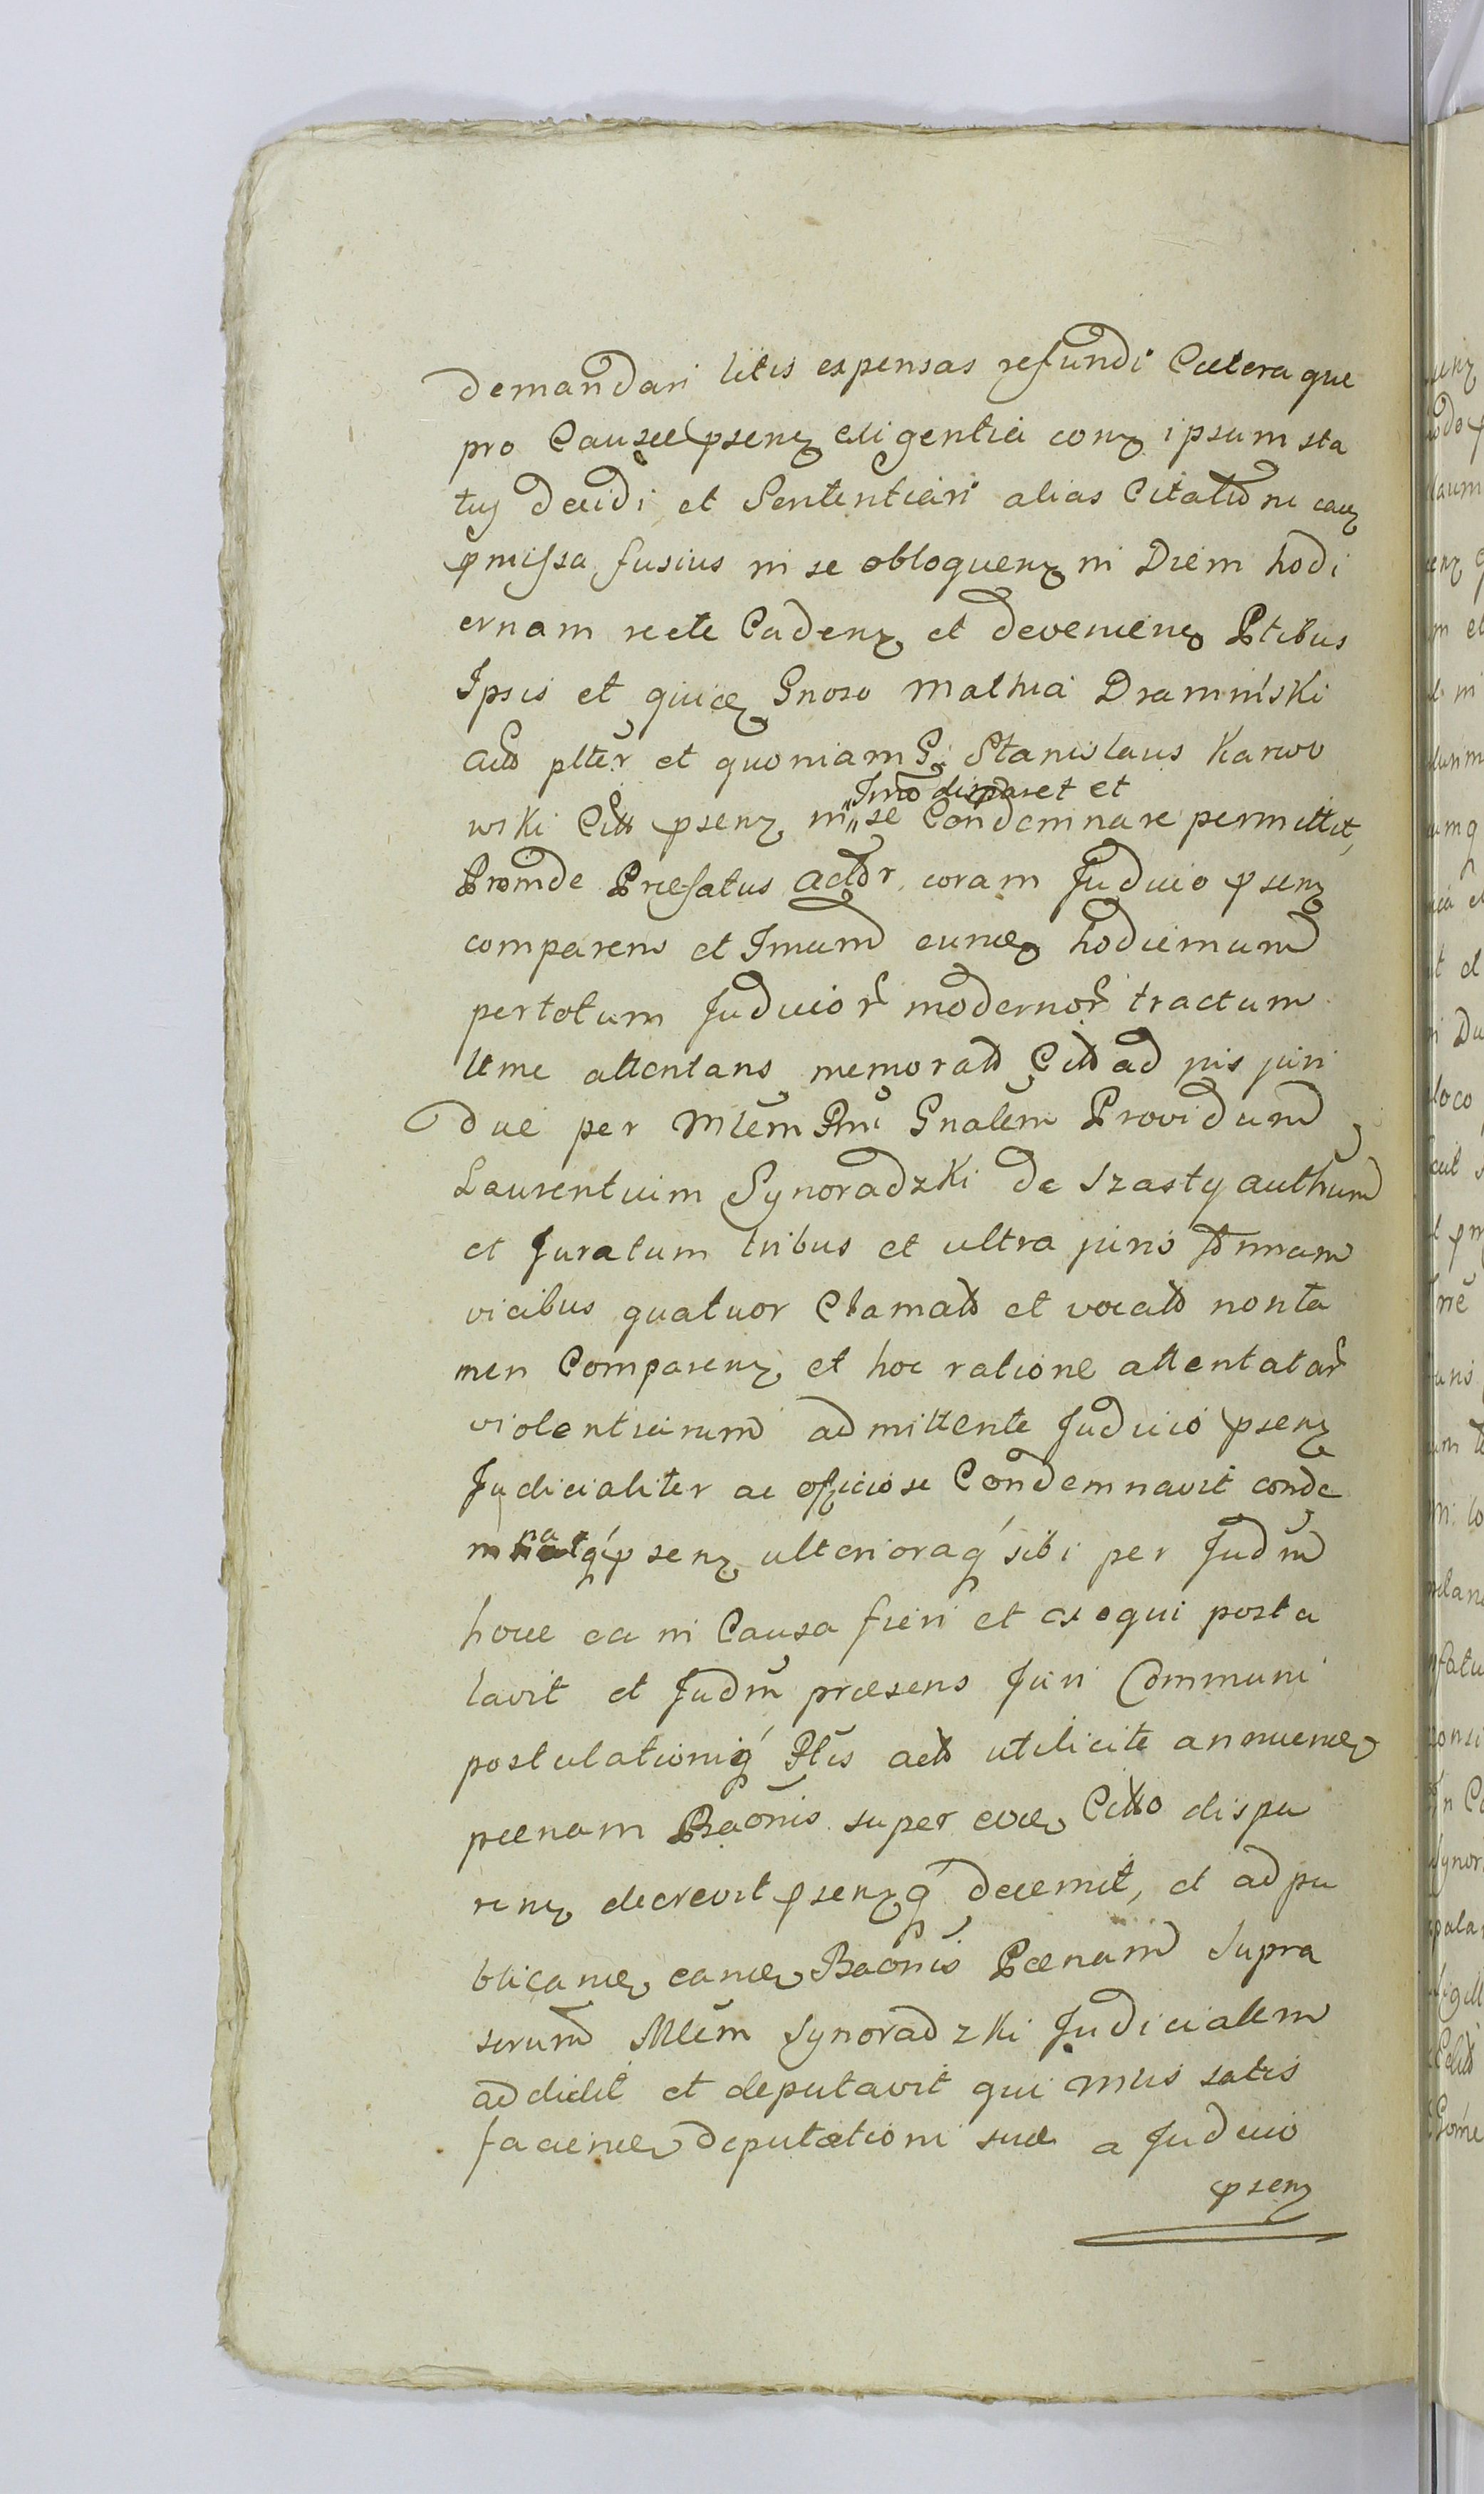 demandari litis expensas refundi Caeteraque
pro Causae psenz exigentia conz ipsum sta
tuj decidi et Sententiari alias Citatio ni eaz
pmissa fusius in se obloquenz in Diem hodi
ernam recte Cadenz et devenienz Ptibus
Ipsis et Gnoso Mathia Draminski
acto plter et quoniam G. Stanislaus Karwo
Imo disparet et
wski Citt psenz in se Condemnare permittit,
Proinde Praefatus actor coram Judicio psenz
comparens et Imum hodiernum
per totum Judicior modernor tractum
ltme attentans memorato Citto ad jus juri
due per Mlem Rni Gnalem Providum
Laurentium Synoradzki de Szasty authum
et Juratum tribus et ultra juris formam
vicibus quatuor Clamato et vocato non ta
men Comparenz et hoc ratione attentatar
violentiarum admittente Judicio psenz
Judicialiter ac officiose Condemnavit conde
mnatq psenz ulterioraq sibi per Judm
hocce ea in Causa fieri et exequi postu
lavit et Judm praesens Juri Communi
postulationiq Ptis acto utilicite annuendo
paenam Baonis super Citto dispa
renz decrevit psenzq decernit, et ad pu
blicand eand Baonis Paenam supra
scrum Mlem Synoradzki Judicialem
addidit et deputavit qui Mlis satis
faciendo deputationi suae a Judicio
psenz